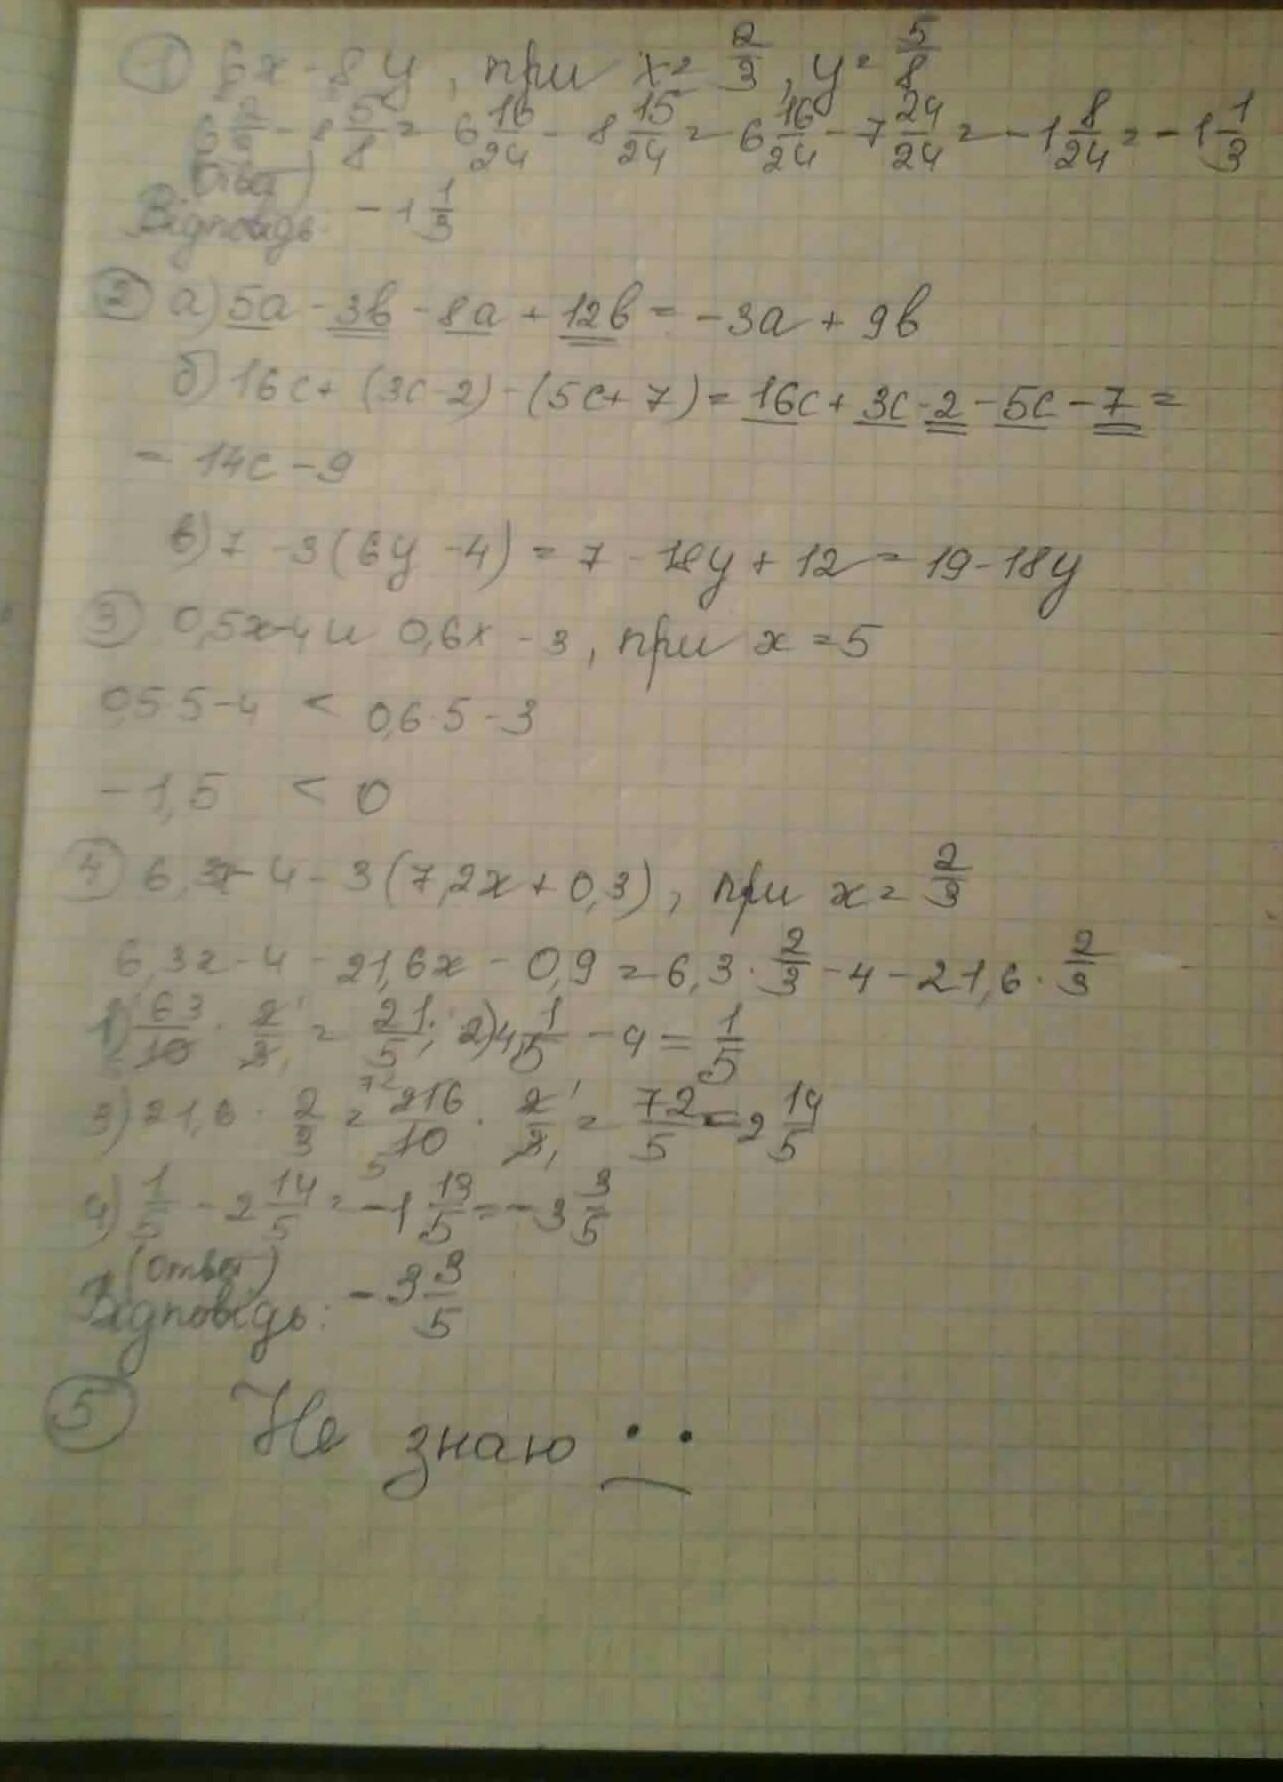 ① 6x - 8y, при x = 2/3, y = 5/8
6 2/3 - 8 5/8 = 6 16/24 - 8 15/24 = 6 16/24 - 7 24/24 = -1 8/24 = -1 1/3
(Ответ)
Відповідь: -1 1/3
② а) 5a - 3b - 8a + 12b = -3a + 9b
б) 16c + (3c - 2) - (5c + 7) = 16c + 3c - 2 - 5c - 7 =
= 14c - 9
в) 7 - 3(6y - 4) = 7 - 18y + 12 = 19 - 18y
③ 0,5x - 4 и 0,6x - 3, при x = 5
0,5·5 - 4 < 0,6·5 - 3
-1,5 < 0
④ 6,3x - 4 - 3(7,2x + 0,3), при x = 2/3
6,3x - 4 - 21,6x - 0,9 = 6,3 · 2/3 - 4 - 21,6 · 2/3
1) 63/10 · 2/3 = 21/5; 2) 4 1/5 - 4 = 1/5
3) 21,6 · 2/3 = 216/10 · 2/3 = 72/5 = 2 14/5
4) 1/5 - 2 14/5 = -1 13/5 = -3 3/5
(ответ)
Відповідь: -3 3/5
⑤ Не знаю